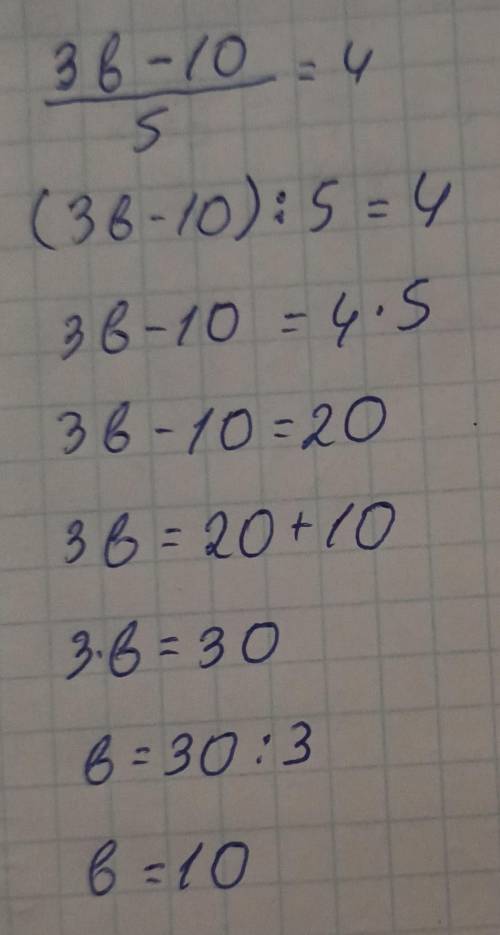 3в - 10 / 5 = 4
(3в - 10) : 5 = 4
3в - 10 = 4 · 5
3в - 10 = 20
3в = 20 + 10
3 · в = 30
в = 30 : 3
в = 10